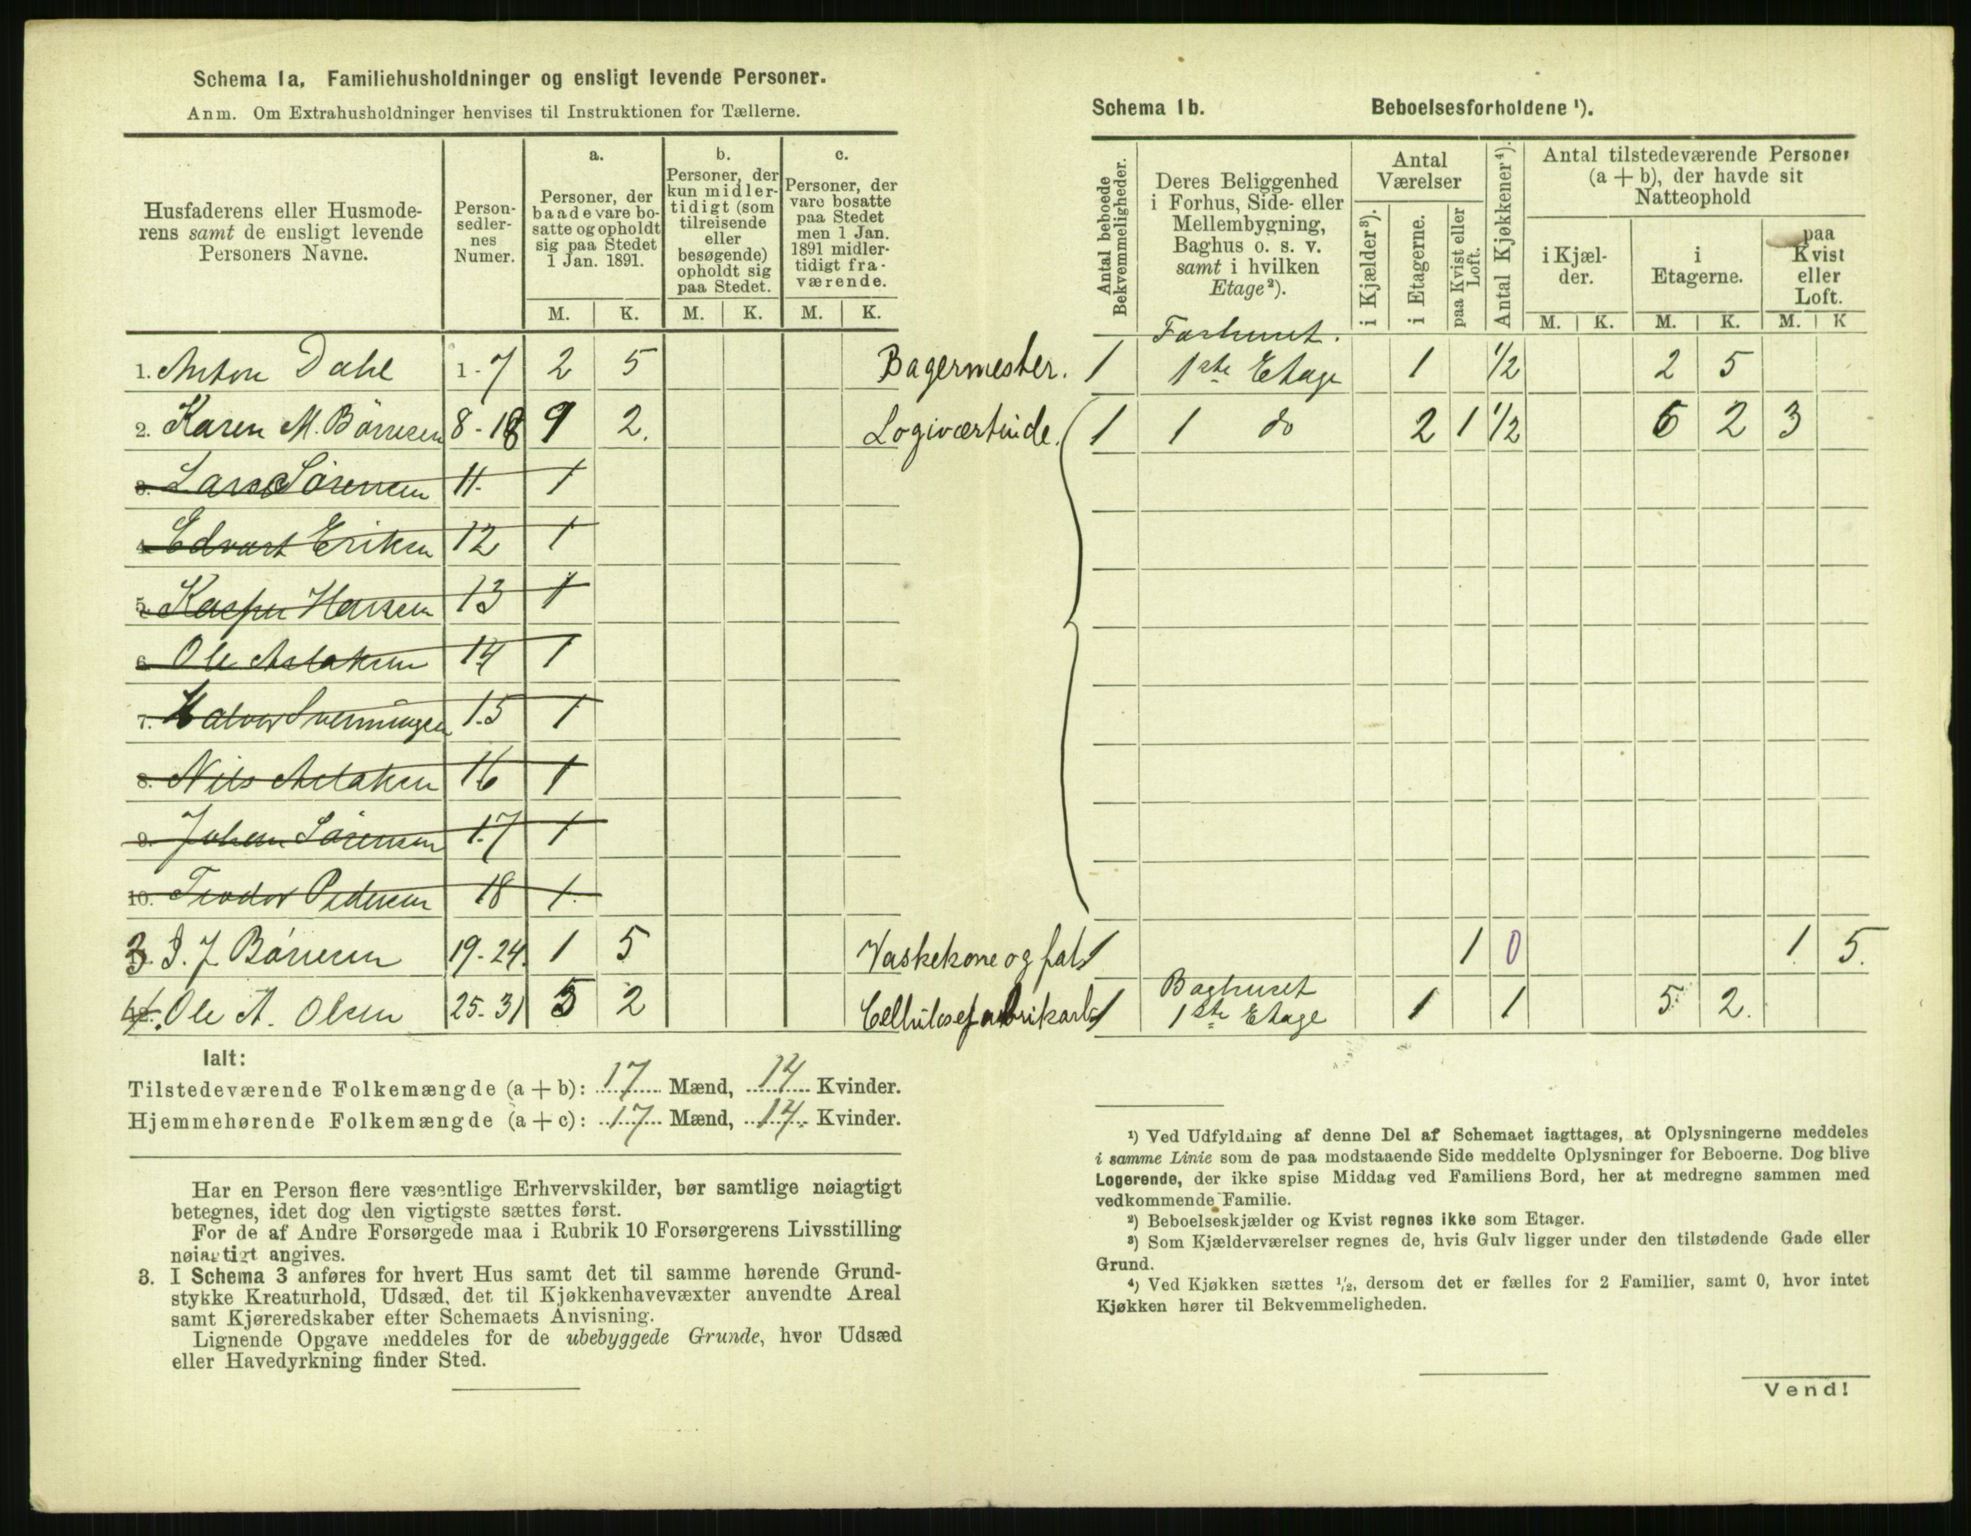 Schema 1a. Familiehusholdninger og ensligt levende Personer.
Anm. Om Extrahusholdninger henvises til Instruktionen for Tællerne.
Husfaderens eller Husmode-
rens samt de ensligt levende
Personers Navne.
Person-
sedler-
nes
Numer.
a.
Personer, der
baade vare bo-
satte og opholdt
sig paa Stedet
1 Jan. 1891.
b.
Personer, der
kun midler-
tidigt (som
tilreisende
eller
besøgende)
opholdt sig
paa Stedet.
c.
Personer, der
vare bosatte
paa Stedet
men 1 Jan.
1891 midler-
tidigt fra-
værende.
M. K. M. K. M. K.
1. Anton Dahl 1-7 2 5 Bagermester.
2. Karen M. Børresen 8-18 9 2. Logiværtinde.
3. Lars Sørensen 11. 1
4. Edvart Eriksen 12 1
5. Kasper Hansen 13 1
6. Ole Aslaksen 14 1
7. Halvor Svenningsen 15 1
8. Nils Aslaksen 16 1
9. Johan Sørensen 17 1
10. Teodor Pedersen 18 1.
3. J. Børresen 19-24. 1 5 Vaskekone og fat.
4. Ole A. Olsen 25-31 5 2 Cellulosefabrikarb
Ialt:
Tilstedeværende Folkemængde (a + b): 17 Mænd, 14 Kvinder.
Hjemmehørende Folkemængde (a + c): 17 Mænd, 14. Kvinder.
Har en Person flere væsentlige Erhvervskilder, bør samtlige nøiagtigt
betegnes, idet dog den vigtigste sættes først.
For de af Andre Forsørgede maa i Rubrik 10 Forsørgerens Livsstilling
nøiagtigt angives.
3. I Schema 3 anføres for hvert Hus samt det til samme hørende Grund-
stykke Kreaturhold, Udsæd, det til Kjøkkenhavevæxter anvendte Areal
samt Kjøreredskaber efter Schemaets Anvisning.
Lignende Opgave meddeles for de ubebyggede Grunde, hvor Udsæd
eller Havedyrkning finder Sted.
Schema 1b. Beboelsesforholdene ¹).
Antal beboede
Bekvemmeligheder.
Deres Beliggenhed
i Forhus, Side- eller
Mellembygning,
Baghus o. s. v.
samt i hvilken
Etage²).
Antal
Værelser
i Kjælder³).
i Etagerne.
paa Kvist eller
Loft.
Antal Kjøkkener⁴).
Antal tilstedeværende Personer
(a + b), der havde sit
Natteophold
i Kjæl-
der.
i
Etagerne.
paa
Kvist
eller
Loft.
M. K. M. K. M. K
Forhuset.
1 1ste Etage 1 1/2 2 5
1 1 do 2 1 1/2 6 2 3
1 1 0 1. 5.
Baghuset
1 1ste Etage 1 1 5 2.
¹) Ved Udfyldning af denne Del af Schemaet iagttages, at Oplysningerne meddeles
i samme Linie som de paa modstaaende Side meddelte Oplysninger for Beboerne. Dog blive
Logerende, der ikke spise Middag ved Familiens Bord, her at medregne sammen med
vedkommende Familie.
²) Beboelseskjælder og Kvist regnes ikke som Etager.
³) Som Kjælderværelser regnes de, hvis Gulv ligger under den tilstødende Gade eller
Grund.
⁴) Ved Kjøkken sættes ¹/₂, dersom det er fælles for 2 Familier, samt 0, hvor intet
Kjøkken hører til Bekvemmeligheden.
Vend!